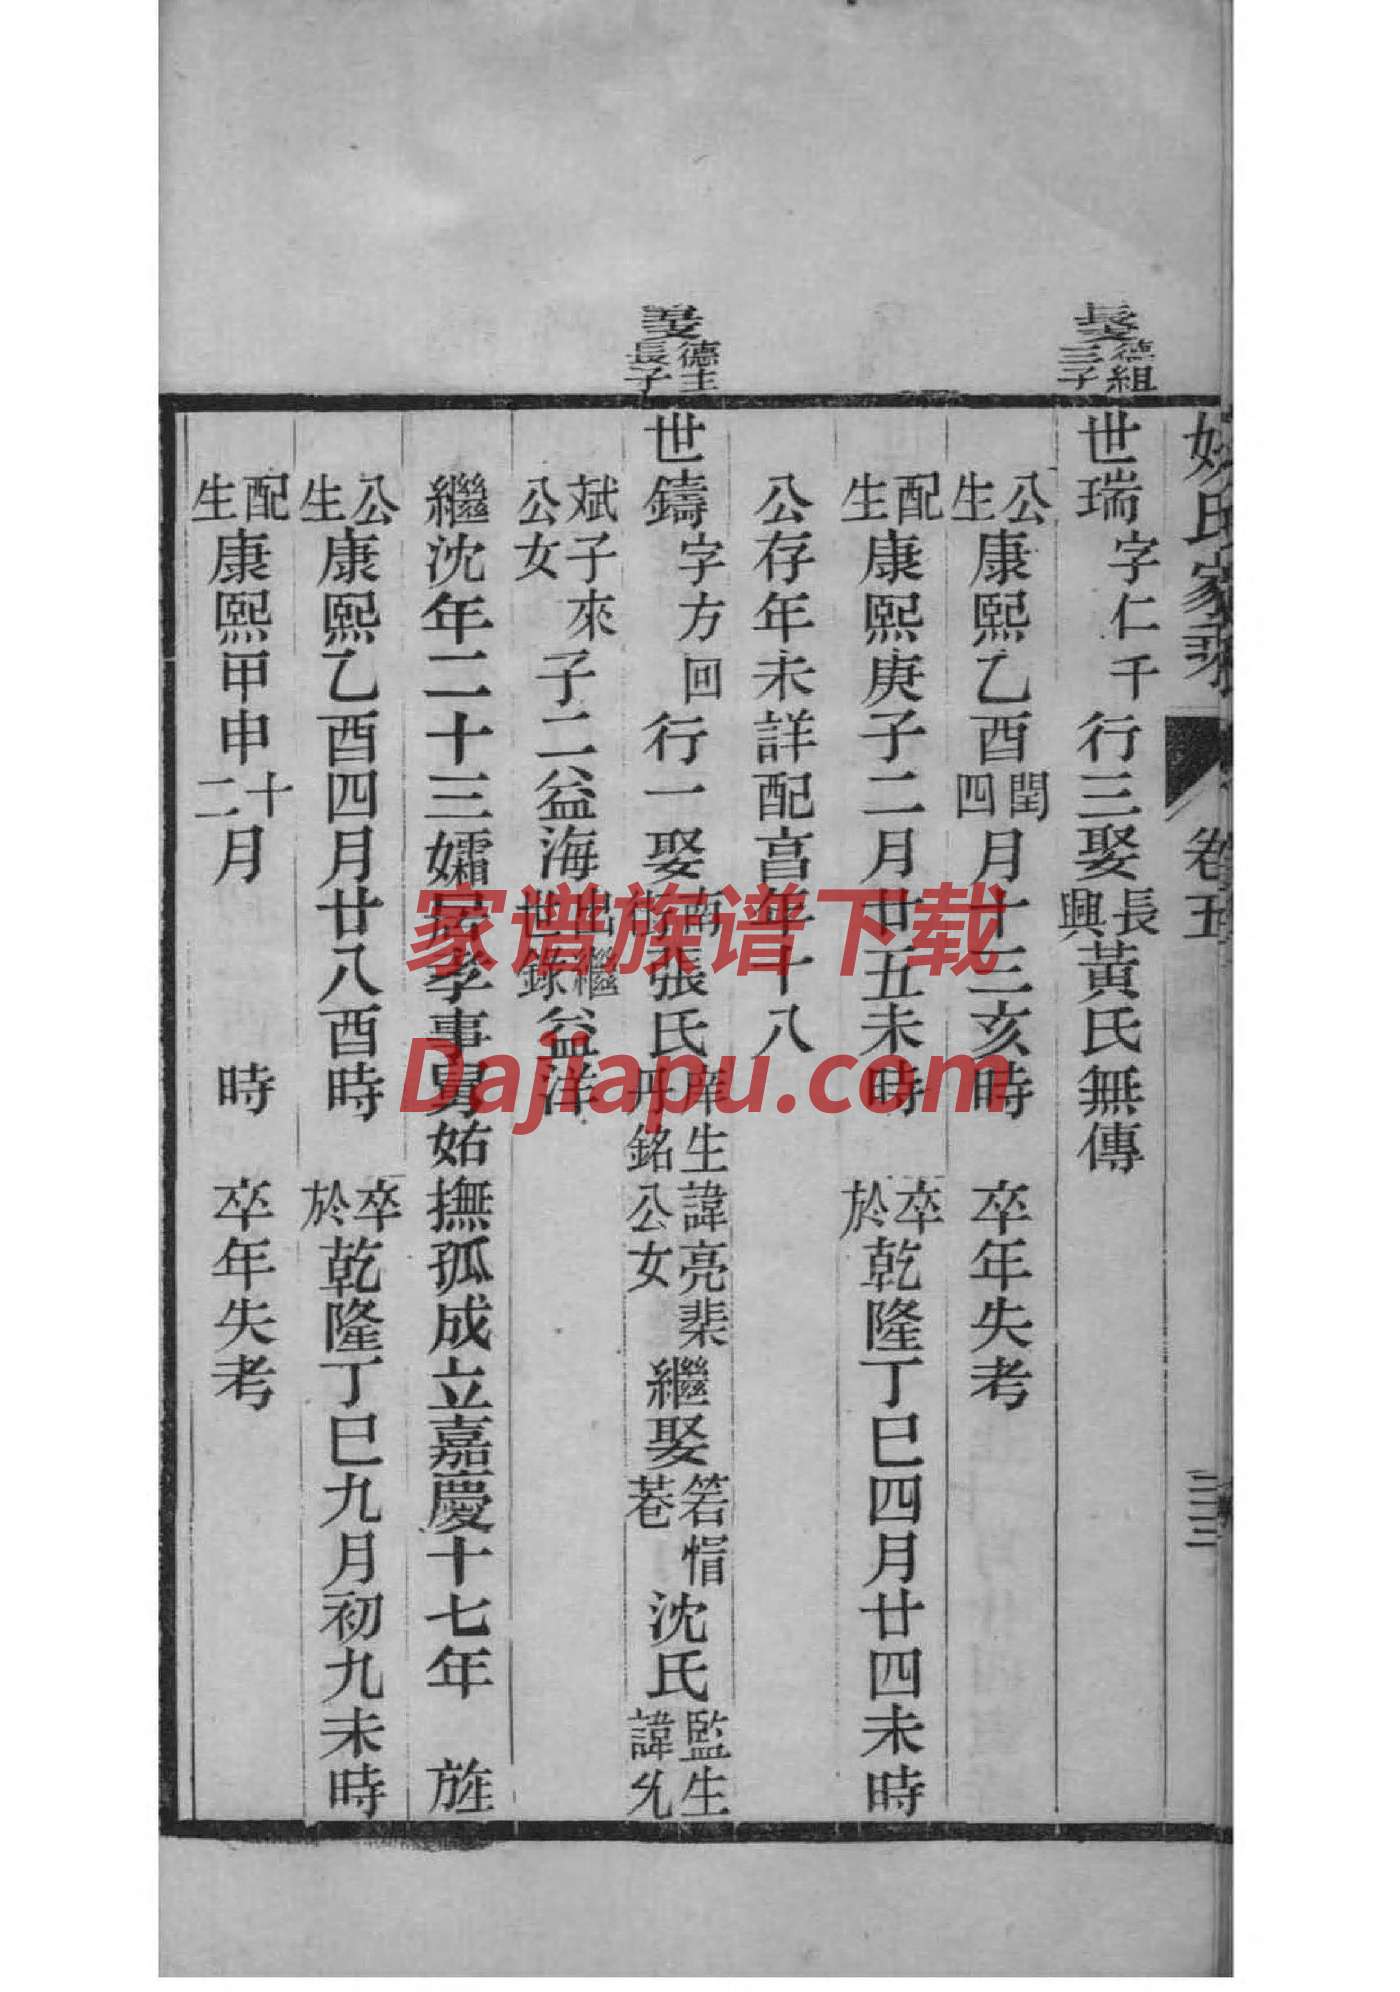 氏家乘
卷五
三十三
長文 德組三子
世瑞 字仁千 行三娶長興黃氏無傳
公生康熙乙酉閏四月十三亥時 卒年失考
配生康熙庚子二月廿五未時 卒於乾隆丁巳四月廿四未時
公存年未詳配亯年十八
德主長子
世鑄 字方回 行一娶南街張氏庠生諱亮棐丹銘公女 繼娶箬㡌巷沈氏監生諱允
斌子來公女 子二益海出繼世錄益洋
繼沈年二十三孀居孝事舅姑撫孤成立嘉慶十七年 旌
公生康熙乙酉四月廿八酉時 卒於乾隆丁巳九月初九未時
配生康熙甲申十二月 時 卒年失考
家谱族谱下载
Dajiapu.com